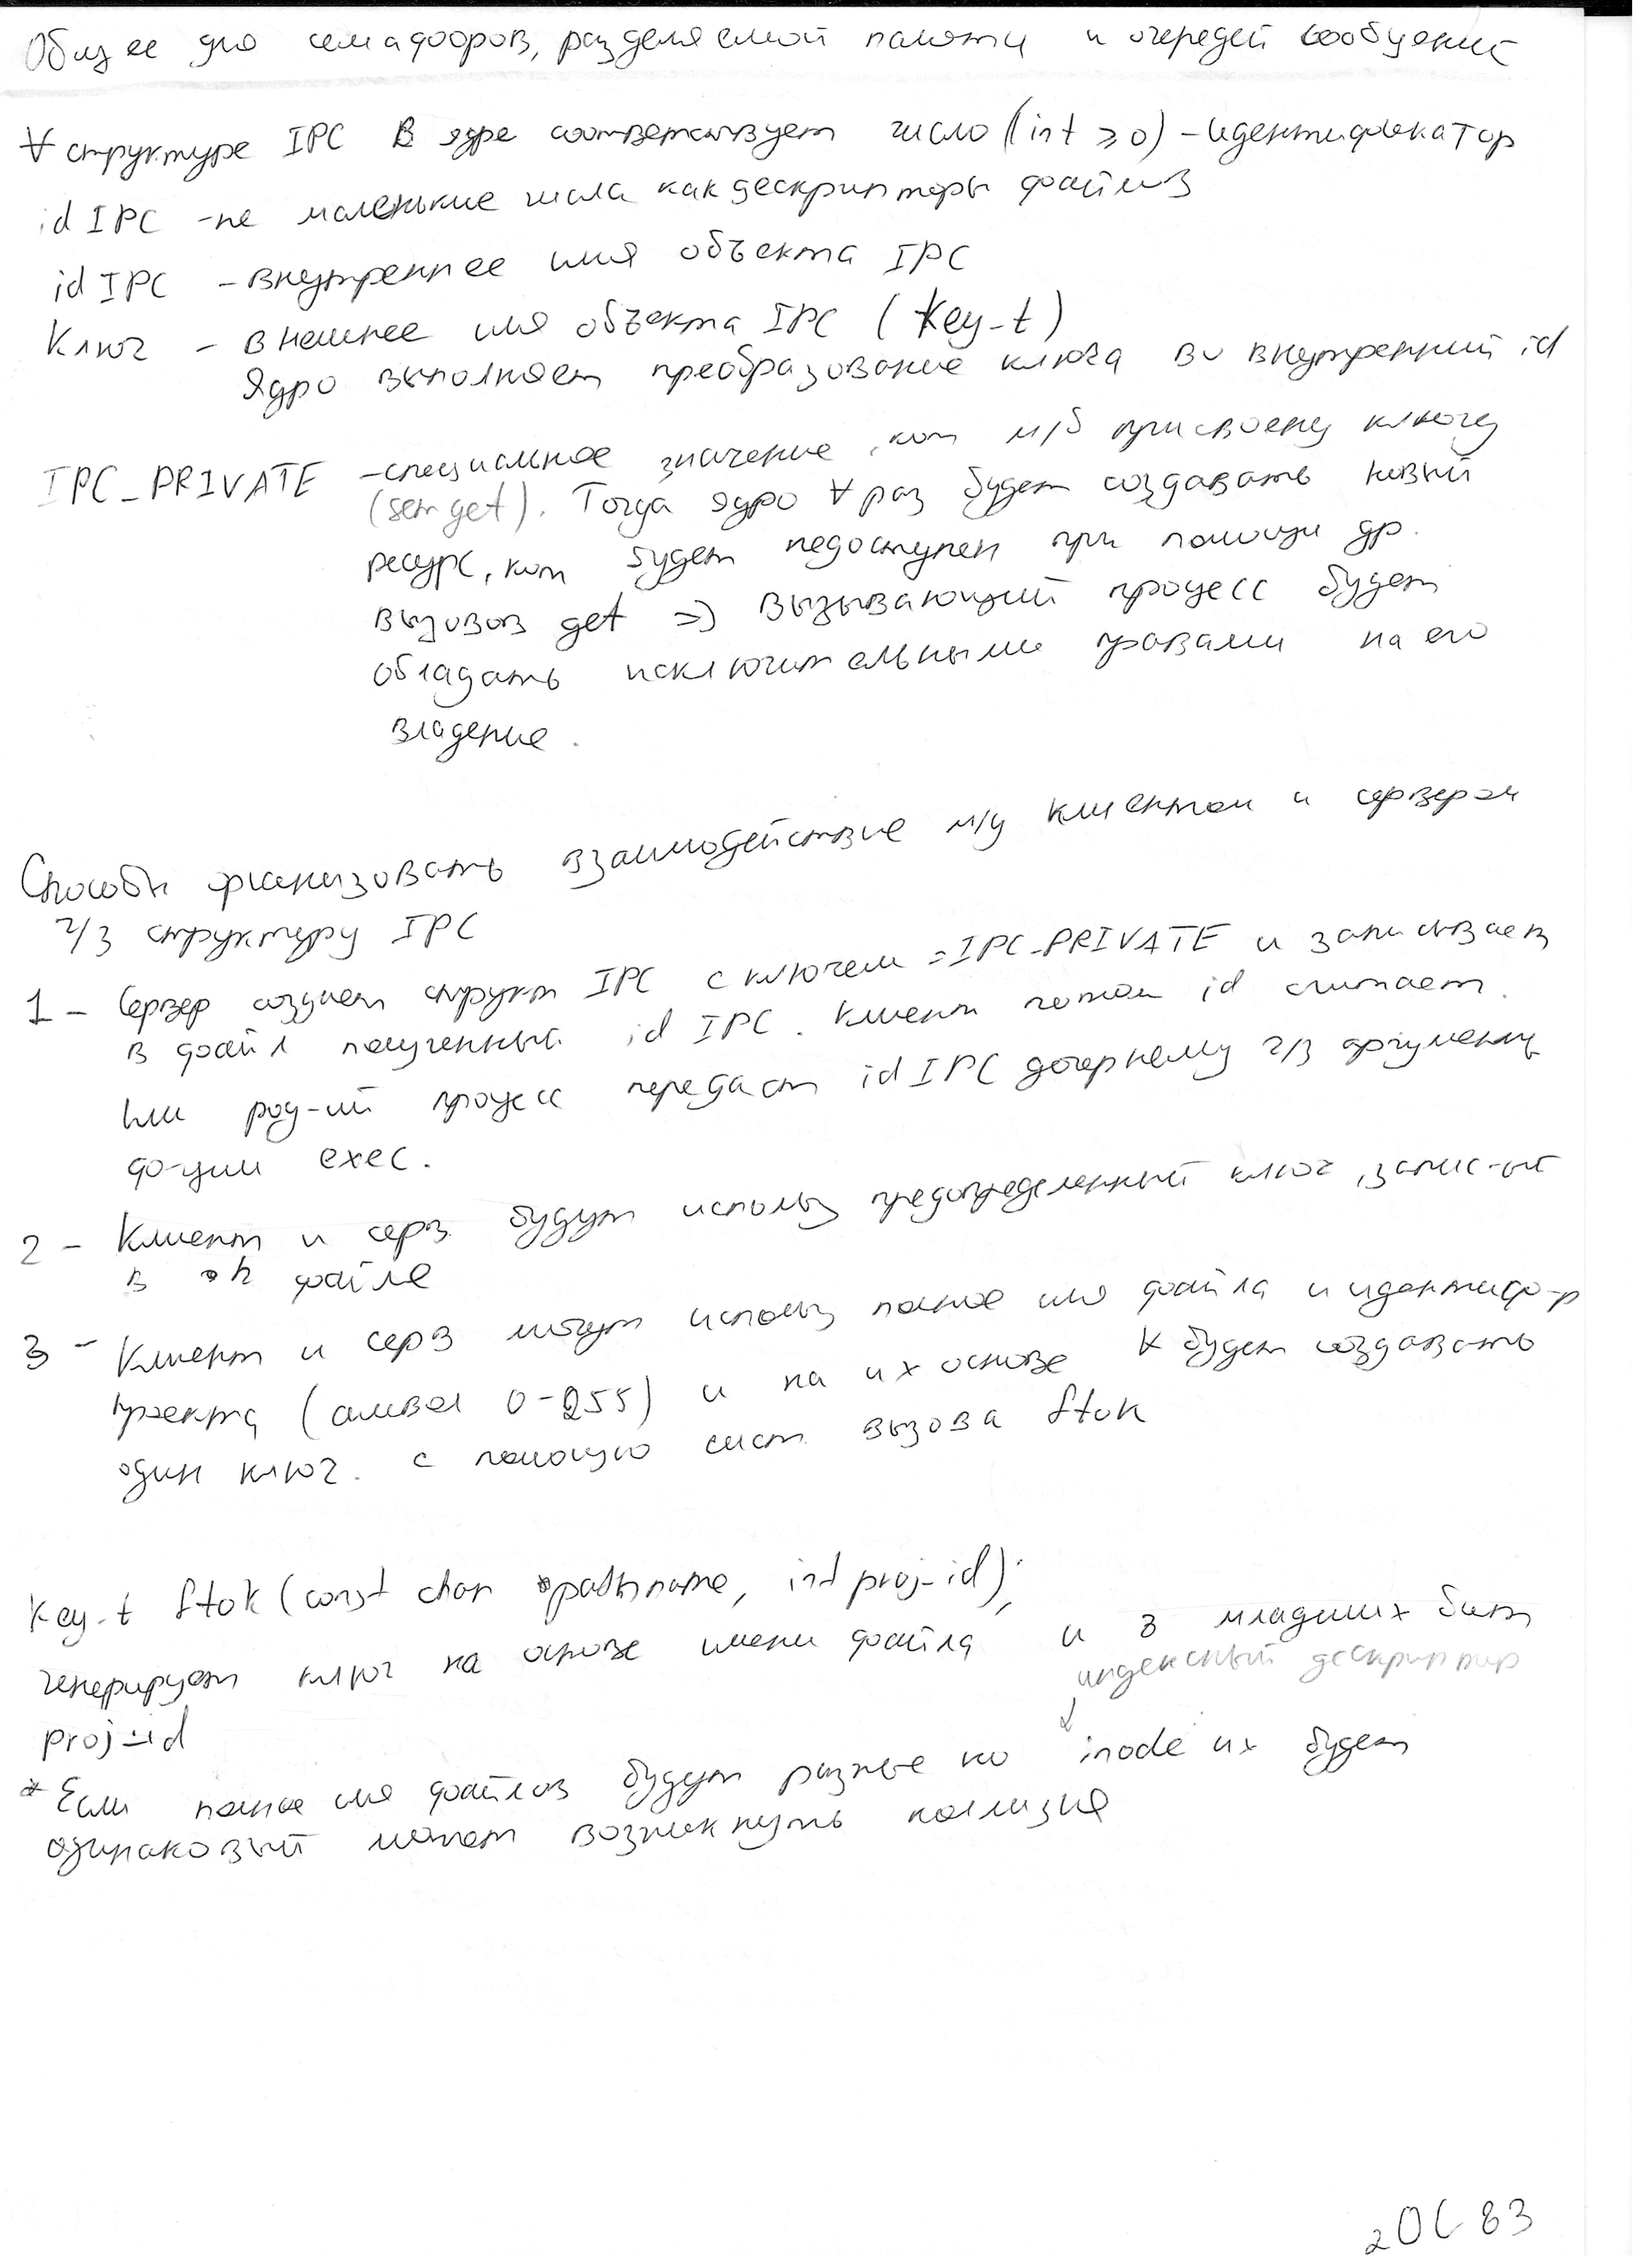 Общее для семафоров, разделяемой памяти и очередей сообщений
∀ структуре IPC в ядре соответствует число (int ≥ 0) - идентификатор
id IPC - не маленькие числа как дескрипторы файлов
id IPC - внутреннее имя объекта IPC
Ключ - внешнее имя объекта IPC (key_t)
Ядро выполняет преобразование ключа во внутренний id
IPC_PRIVATE - специальное значение, кот м/б присвоену ключу
(semget). Тогда ядро ∀ раз будет создавать новый
ресурс, кот будет недоступен при помощи др.
вызовов get => вызывающий процесс будет
обладать исключительными правами на его
владение.
Способы организовать взаимодействие м/у клиентом и сервером
ч/з структуру IPC
1 - Сервер создает структ IPC с ключем = IPC_PRIVATE и записывает
в файл полученный id IPC. Клиент потом id считает.
Или род-ий процесс передаст id IPC дочернему ч/з аргументы
ф-ции exec.
2 - Клиент и серв. будут использ предопределенный ключ, запис-ый
в .h файле
3 - Клиент и серв могут использ полное имя файла и идентиф-р
проекта (символ 0-255) и на их основе ∀ будет создавать
один ключ. с помощью сист. вызова ftok
key_t ftok (const char *pathname, int proj_id);
генерирует ключ на основе имени файла и 8 младших бит
индексный дескриптор
proj_id
* Если полное имя файлов будут разные но inode их будет
одинаковый может возникнуть коллизия
2 ОС 83